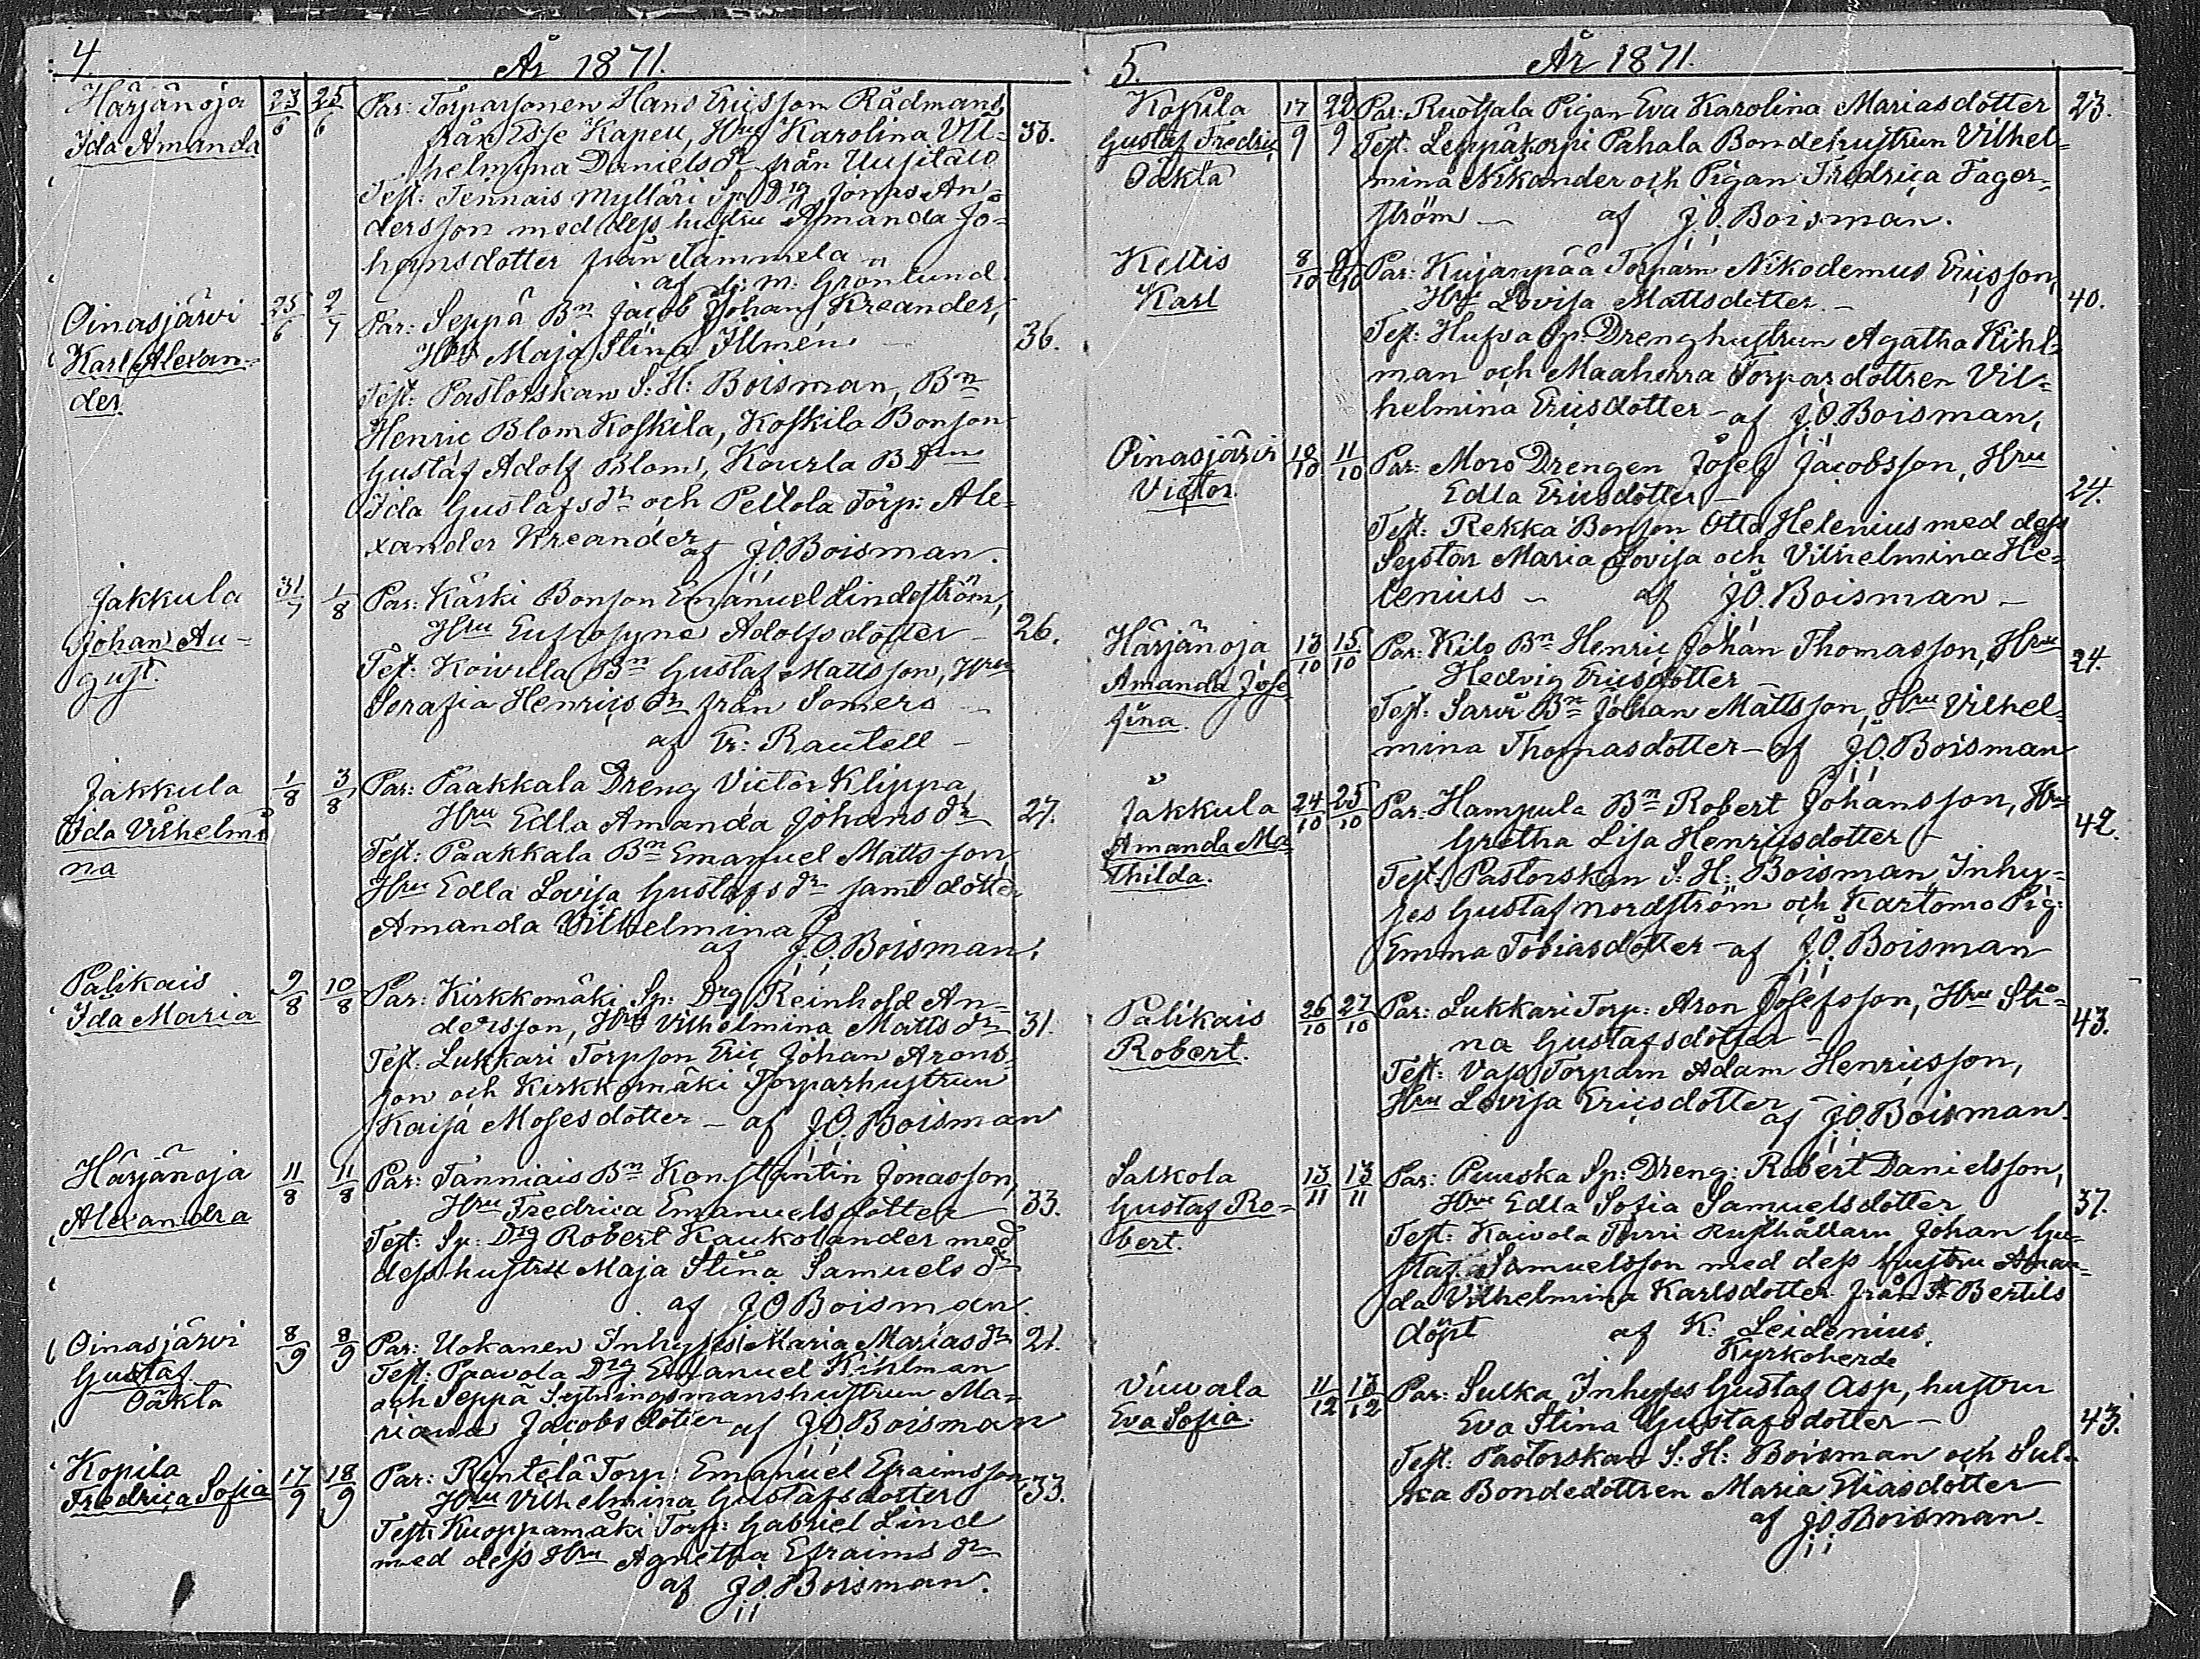 4.
År 1871.
Härjänoja 23/6 25/6 Par: Torparsonen Hans Ericsson Rådmans
Ida Amanda från Esse Kapell, Hru Karolina Vil- 33.
helmina Danielsdr från Uusitalo
Test: Tennais Mylläri Sp: Drg Jonas An-
dersson med dess hustru Amanda Jo-
hansdotter från Tammela
af G: M: Grönlund.
Oinasjärvi 25/6 2/7 Par: Seppä Bn Jacob Johan Kreander,
Karl Alexan- Hru Maja Stina Illmén 36.
der Test: Pastorskan S: H: Boisman, Bn
Henric Blom Koskila, Koskila Bonson
Gustaf Adolf Blom, Kourla B Drn
Ida Gustafsdr och Peltola Torp: Ale-
xander Kreander af J.O. Boisman.
Jakkula 31/7 1/8 Par: Käski Bonson Emanuel Lindeström,
Johan Au- Hru Eufrosyne Adolfsdotter 26.
gust. Test: Koivula Bn Gustaf Mattsson, Hru
Serafia Henricsdr från Somero
af Fr: Rautell
Jakkula 1/8 3/8 Par: Paakkala Dreng Victor Klippa,
Ida Vilhelmi Hru Edla Amanda Johansdr 27.
na Test: Paakkala Bn Emanuel Mattsson,
Hru Edla Lovisa Gustafsdr samt dotter
Amanda Vilhelmina
af J.O. Boisman.
Palikais 9/8 10/8 Par: Kirkkomäki Sp: Drg Reinhold An-
Ida Maria dersson, Hru Vilhelmina Mattsdr 31.
Test: Lukkari Torpson Eric Johan Arons-
son och Kirkkomäki Torparhustrun
Kaisa Mosesdotter – af J.O. Boisman
Härjänoja 11/8 11/8 Par: Tanniais Bn Konstantin Jonasson,
Alexandra Hru Fredrica Emanuelsdotter 33.
Test: Sp: Drg Robert Kaukolander med
dess hustru Maja Stina Samuelsdr
af J O Boisman.
Oinasjärvi 8/9 8/9 Par: Uokanen Inhyses Maria Mariasdr 21.
Gustaf Test: Paavola Drg Emanuel Kihlman
Oäkta och Seppä Sextningsmanshustrun Ma-
riana Jacobsdotter af J.O. Boisman
Kopila 17/9 18/9 Par: Rintelä Torp: Emanuel Efraimsson,
Fredrica Sofia Hru Vilhelmina Gustafsdotter 33.
Test: Kuoppamäki Torp: Gabriel Lind
med dess Hru Agnetha Efraimsdr
af J.O. Boisman.
5.
År 1871.
Kopila 17/9 22/9 Par: Ruotsala Pigan Eva Karolina Mariasdotter 23.
Gustaf Fredric Test: Leppäkorpi Pahala Bondehustrun Vilhel-
Oäkta mina Nikander och Pigan Fredrica Fager-
ström – af J.O. Boisman.
Keltis 8/10 9/10 Par: Kujanpää Torparn Nikodemus Ericsson,
Karl Hru Lovisa Mattsdotter – 40.
Test: Hufva Sp: Drenghustrun Agatha Kihl-
man och Maaherra Torpardottren Vil-
helmina Ericsdotter – af J.O. Boisman,
Oinasjärvi 10/10 11/10 Par: Moro Drengen Josef Jacobsson, Hru
Victor. Edla Ericsdotter – 24.
Test: Rekka Bonson Otto Helenius med dess
Syster Maria Lovisa och Vilhelmina He-
lenius – af J.O. Boisman –
Härjänoja 13/10 15/10 Par: Kilo Bn Henric Johan Thomasson, Hru 24.
Amanda Jose- Hedvig Ericsdotter –
fina. Test: Sarvi Bn Johan Mattsson, Hru Vilhel-
mina Thomasdotter – af J.O. Boisman
Jakkula 24/10 25/10 Par: Hampula Bn Robert Johansson, Hru
Amanda Ma- Gretha Lisa Henricsdotter – 42.
thilda. Test: Pastorskan S: H: Boisman Inhy-
ses Gustaf Nordström och Kartomo Pig:
Emma Tobiasdotter – af J.O. Boisman
Palikais 26/10 27/10 Par: Lukkari Torp: Aron Josefsson, Hru Sti-
Robert. na Gustafsdotter – 43.
Test: Vass Torparn Adam Henricsson,
Hru Lovisa Ericsdotter –
af J.O. Boisman.
Salkola 13/11 13/11 Par: Puuska Sp: Dreng: Robert Danielsson,
Gustaf Ro- Hru Edla Sofia Samuelsdotter 37.
bert. Test: Kaivola Turri Rusthållarn Johan Gu-
staf Samuelsson med dess hustru Aman-
da Vilhelmina Karlsdotter från St Bertils
döpt af K: Leidenius.
Kyrkoherde
Viuvala 11/12 13/12 Par: Sulka Inhyses Gustaf Asp, hustru
Eva Sofia. Eva Stina Gustafsdotter – 43.
Test: Pastorskan S: H: Boisman och Sul-
ka Bondedottren Maria Eliasdotter
af J.O. Boisman.